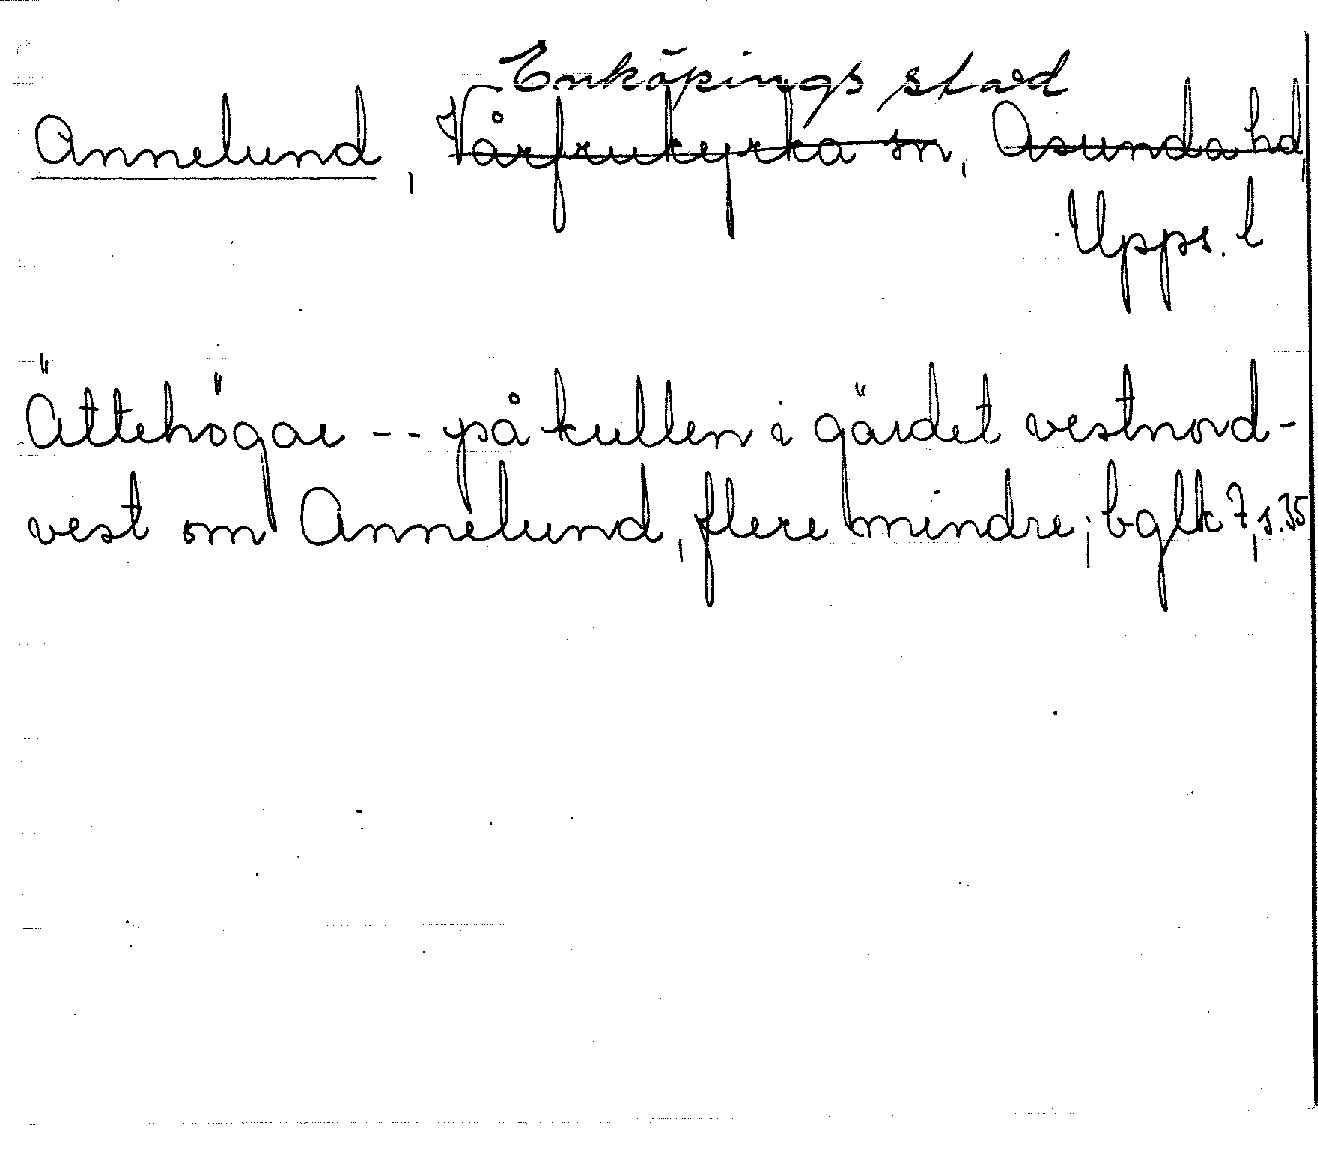 Enköpings stad
Annelund, Vårfrukyrka sn, Åsunda hd,
Upps. l
Ättehögar -- på kullen i gärdet vestnord-
vest om Annelund, flere mindre; bglk 7, s. 35